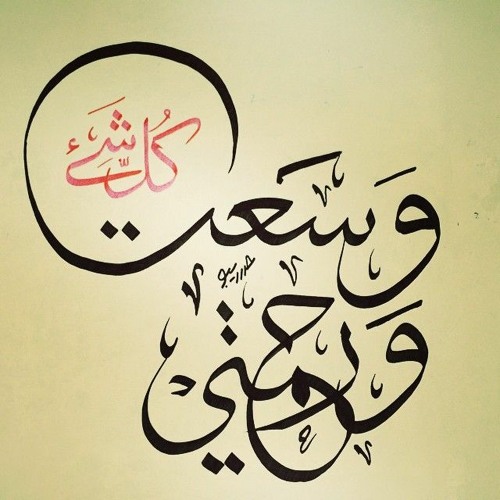 وَرحمتي
وَسَعت
كُلّ شَيء